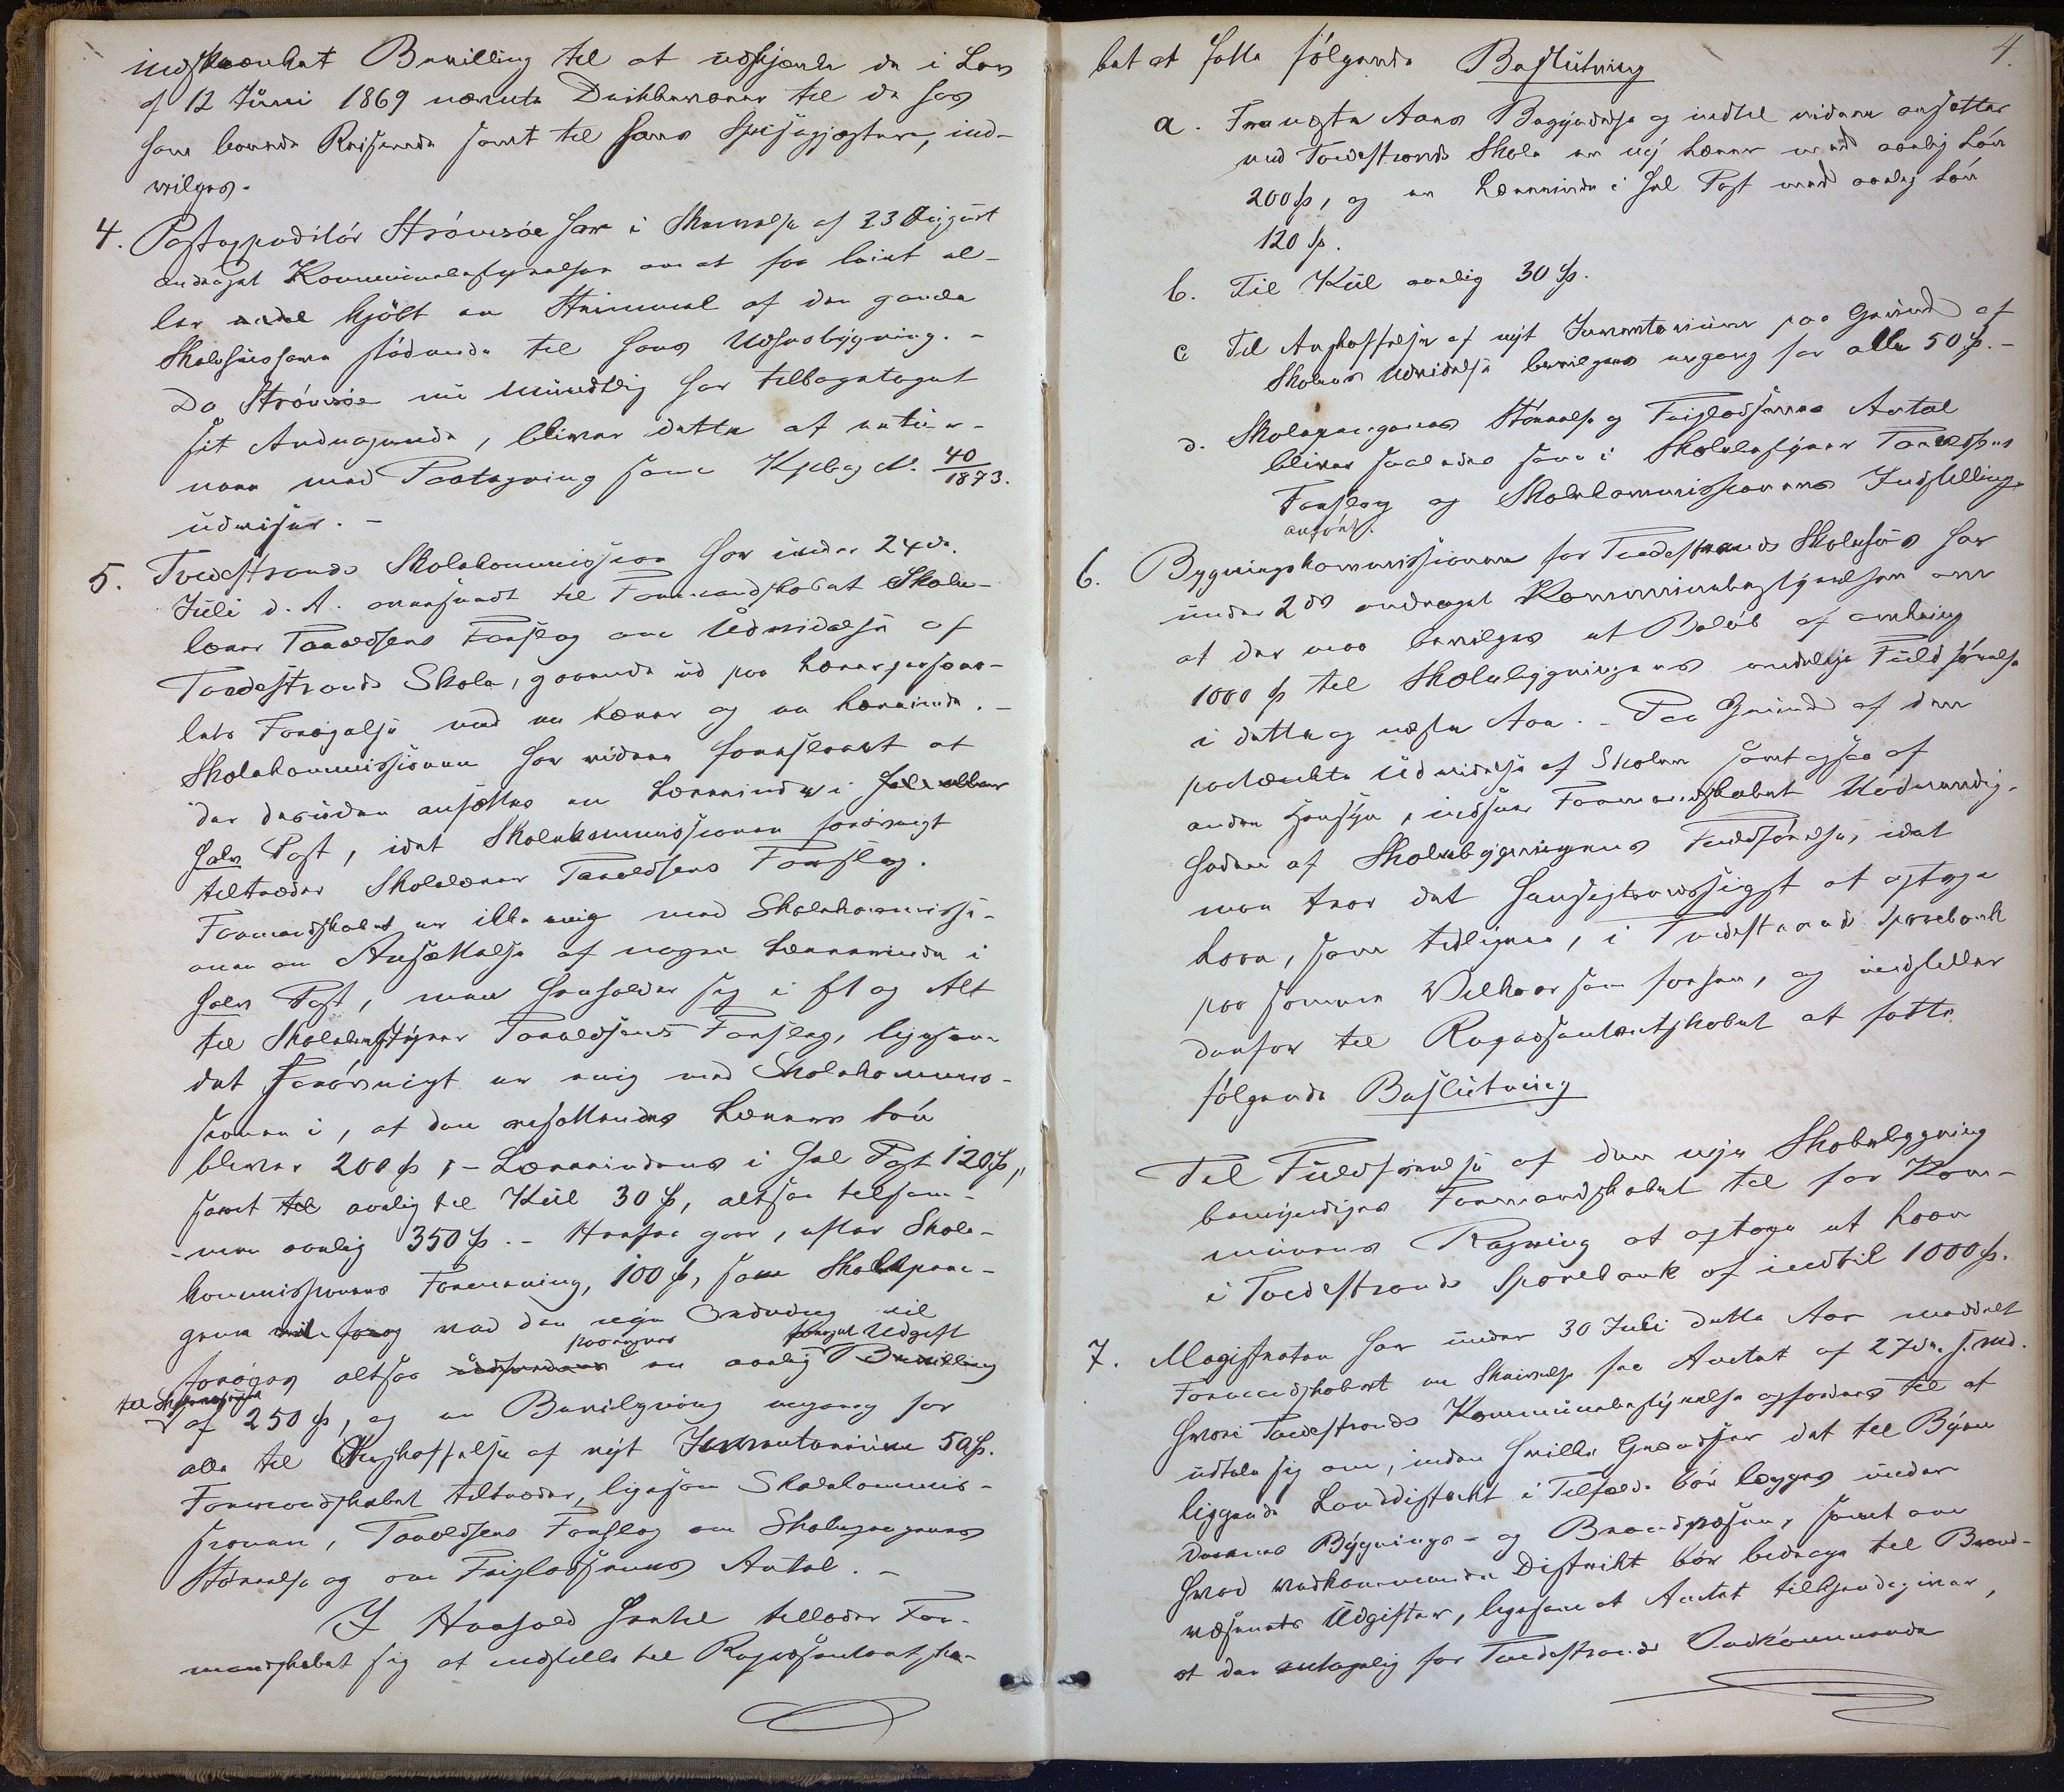 indskrænket Bevilling til at udskjænke de i Lov
af 12 Juni 1869 nævnte Drikkevarer til de hos
ham boende Reisende samt til hans Spisegjæster, ind-
vilges.
4. Postexpeditør Strömsöe har i Skrivelse af 23 August
andraget Kommunebestyrelsen om at faa leiet el-
ler kjöbt en Strimmel af den gamle
Skolehustomt stödende til hans Udhusbygning. -
Da Strömsöe nu mundtlig har tilbagetaget
sit Andragende, bliver dette at retur-
nere med Paategning som Kpbog N. 40/1873.
udviser. -
5. Tvedestrands Skolekommission har under 24de
Juli d. A. oversendt til Formandskabet Skole-
lærer Taraldsens Forslag om Udvidelse af
Tvedestrands Skole, gaaende ud paa Lærerperso-
lets Forøgelse med en Lærer og en Lærerinde. -
Skolekommissionen har videre foreslaaet at
der desuden ansættes en Lærerinde i hel eller
halv Post, idet Skolekommissionen forövrigt
tiltræder Skolelærer Taraldsens Forslag.
Formandskabet er ikke enig med Skolekommissi-
onen om Ansættelse af nogen Lærerinde i
halv Post, men henholder sig i Et og Alt
til Skolebestyrer Taraldsens Forslag, ligesom
det forövrigt er enig med Skolekommis-
sionen i, at den ansættendes Lærers Lön
bliver 200 Sp, - Lærerindens i hel Post 120 Sp,
samt til aarlig til Kul 30 Sp, altsaa tilsam-
men aarlig 350 Sp. - Herfra gaar, efter Skole-
kommissionens Formening, 100 Sp, som Skolepen-
gene vil forög ved den nye Ordning vil
paaregnes foröget Udgift
foröges altsaa udfordres en aarlig Bevilling
til Skolevæsenet
af 250 Sp, og en Bevilgning engang for
alle til Anskaffelse af nyt Inventarium 50 Sp.
Formandskabet tiltræder, ligesom Skolekommis-
sionen, Taraldsens Forslag om Skolepengenes
Störrelse og om Fripladsernes Antal. -
I Henhold hertil tillader For-
mandskabet sig at indstille til Repræsentantska-
4.
bet at fatte fölgende Beslutning
a. Fra næste Aars Begyndelse og indtil videre ansættes
ved Tvedestrands Skole en ny Lærer med aarlig Lön
200 Sp, og en Lærerinde i hel Post med aarlig Lön
120 Sp.
b. Til Kul aarlig 30 Sp.
c Til Anskaffelse af nyt Inventarium paa Grund af
Skolens Udvidelse bevilges engang for alle 50 Sp. -
d. Skolepengenes Störrelse og Fripladsernes Antal
bliver saaledes som i Skolebestyrer Taraldsens
Forslag og Skolekommissionens Indstilling
anfört.
6. Bygningskommissionen for Tvedestrands Skolehus har
under 2ds andraget Kommunebestyrelsen om
at der maa bevilges et Belöb af omkring
1000 Sp til Skolebygningens endelige Fuldförelse
i dette og næste Aar. - Paa Grund af den
paatænkte Udvidelse af Skolen samt ogsaa af
andre Hensyn, indseer Formandskabet Nödvendig-
heden af Skolebygningens Fuldförelse, idet
man tror det hensigtsmæssigst at optage
Laan, som tidligere, i Tvedestrands Sparebank
paa samme Vilkaar som forhen, og indstiller
derfor til Repræsentantskabet at fatte
fölgende Beslutning
Til Fuldförelse af den nye Skolebygning
bemyndiges Formandskabet til for Kom-
munens Regning at optage et Laan
i Tvedestrands Sparebank af indtil 1000 Sp.
7. Magistraten har under 30 Juli dette Aar meddelt
Formandskabet en Skrivelse fra Amtet af 27de s. Md.
hvori Tvedestrands Kommunebestyrelse opfordres til at
udtale sig om, inden hvilke Grændser det til Byen
liggende Landdistrikt i Tilfælde bör lægges under
dennes Bygnings- og Brandvæsen, samt om
hvad vedkommende Distrikt bör bidrage til Brand-
væsenets Udgifter, ligesom at Amtet tilkjendegiver,
at den antagelig for Tvedestrands Vedkommende